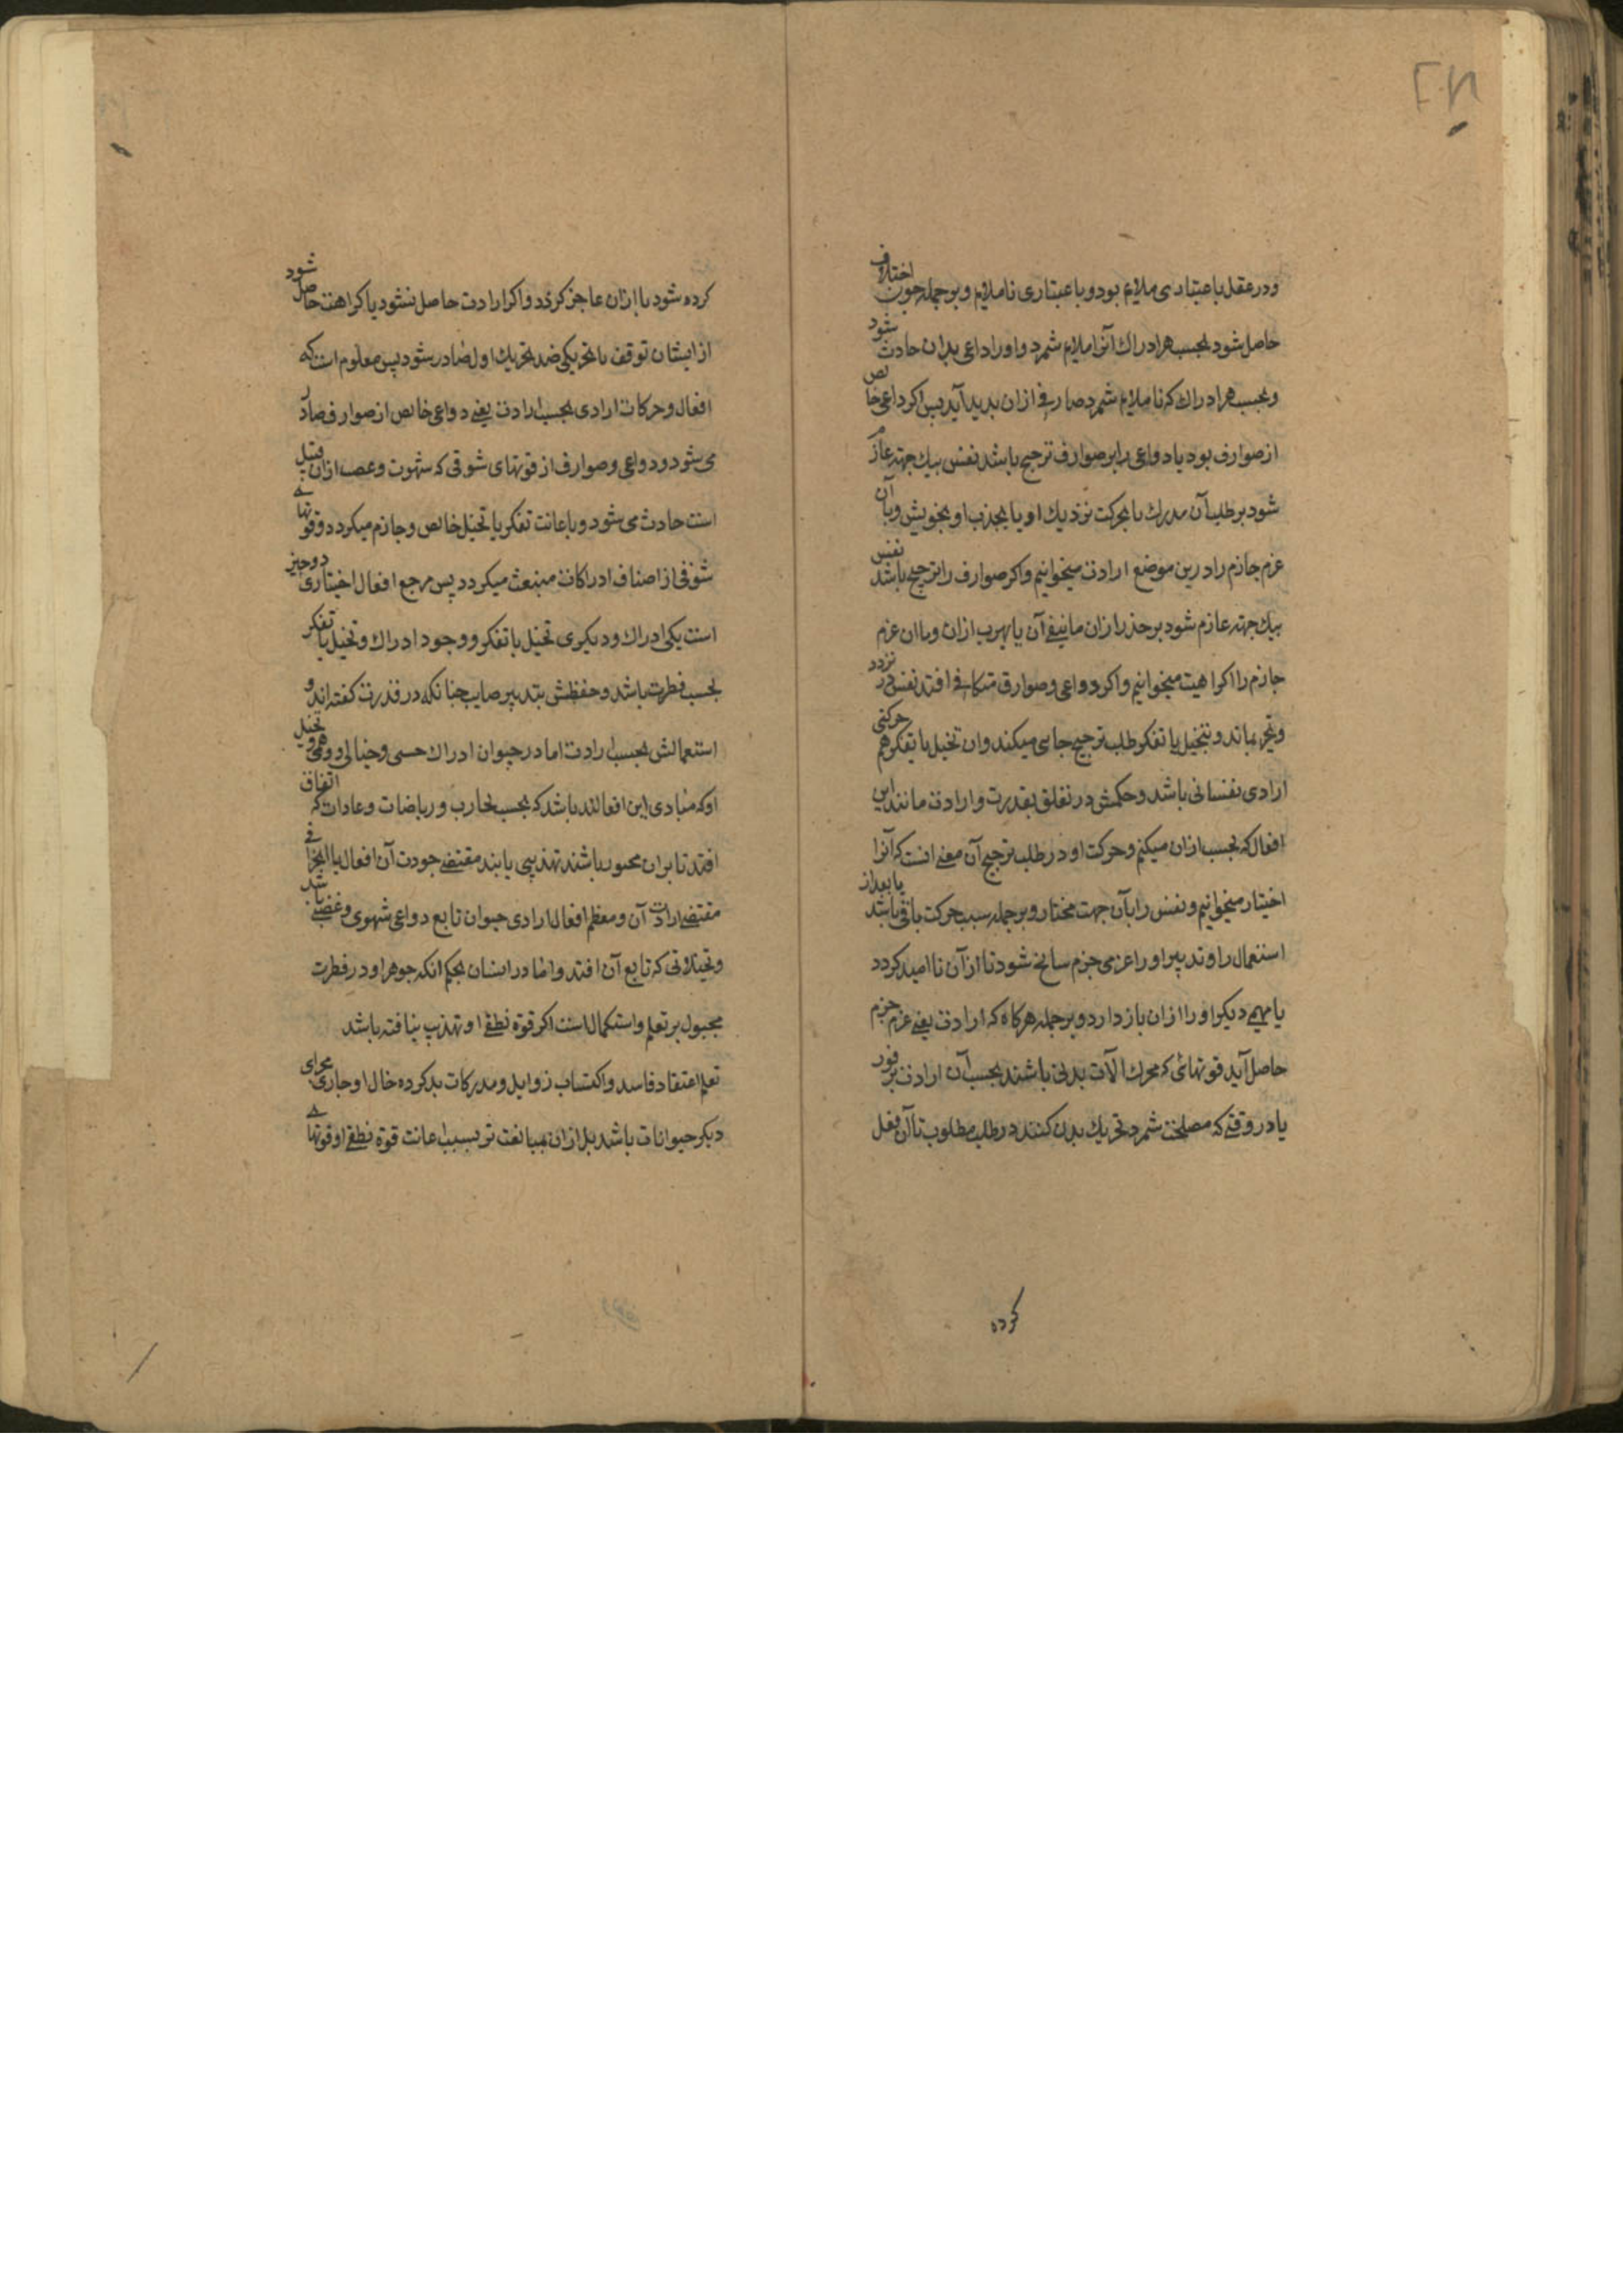 ودر عقل باعتباری ملایم بود و باعتباری ناملایم و بر جمله چون اختلاف
حاصل شود بحسب هر ادراک آنرا ملایم شمرد و او را داعی بدان حادث شود
و بحسب هر ادراک که ناملایم شمرد صارفی ازان بدید آید پس اکر داعی خالص
از صوارف بود یا دواعی را بر صوارف ترجیح باشد نفس بیک جهته عازم
شود بر طلب آن مدرک یا بحرکت نزدیک او یا بجذب او بخویش و با آن
عزم جازم را درین موضع ارادت میخوانیم واکر صوارف را ترجیح باشد نفس
بیک جهته عازم شود بر حذر ازان مانیفی آن یا بهرب ازان و با ان عزم
جازم را کراهیت میخوانیم واکر دواعی و صوارف متکافی افتد نفس در تردد
و تحیر بماند و بتخیل یا تفکر طلب ترجیح جانبی میکند وان تخیل یا تفکر هم حرکتی
ارادی نفسانی باشد و حکمش در تعلق بقدرت و ارادت مانند این
افعال که بحسب ازان میکنم و حرکت او در طلب ترجیح آن معنی است که آنرا
اختیار میخوانیم و نفس را بآن جهت مختار و بر جمله سبب حرکت باقی باشد یا بعد از
استعمال را و تدبیر او را عزمی جزم سانح شود تا از آن ناامید کردد
یا مهمی دیکر او را ازان باز دارد و بر جمله هرکاه که ارادت یعنی عزم جزم
حاصل آید قوتهائی که محرک آلات بدنی باشند بحسب آن ارادت بر فور
یا در وقتی که مصلحت شمرد تحریک بدن کنند در طلب مطلوب تا آن فعل
کرده
کرده شود یا ازان عاجز کردد واکر ارادت حاصل نشود یا کراهت حاصل شود
ازایشان توقف یا تحریکی ضد تحریک اول صادر شود پس معلوم است که
افعال و حرکات ارادی بحسب ارادت یعنی دواعی خالص از صوارف صادر
می شود و دواعی و صوارف از قوتهای شوقی که شهوت و غضب ازان قبیل
است حادث می شود و باعانت تفکر یا تخیل خالص و جازم میکردد و قوتهای
شوقی از اصناف ادراکات منبعث میکردد پس مرجع افعال اختیاری دو چیز
است یکی ادراک و دیکری تخیل یا تفکر و وجود ادراک و تخیل یا تفکر
بحسب فطرت باشد و حفظش بتدبیر صایب چنانکه در قدرت کفته اند و
استعمالش بحسب ارادت اما در حیوان ادراک حسی و خیالی و وهمی و تخیل
او که مبادی این افعالند باشد که بحسب تجارب و ریاضات و عادات که اتفاق
افتد تا بران مجبور باشند تهذیبی یابند مقتضی جودت آن افعال یا انحرافی
مقتضی ارادت آن و معظم افعال ارادی حیوان تابع دواعی شهوی و غضبی باشد
و تخیلاتی که تابع آن افتد و اما در انسان بحکم انکه جوهر او در فطرت
مجبول بر تعلم و استکمال است اکر قوة نطقی او تهذیب نیافته باشد
تعلم اعتقاد فاسد و اکتساب زوایل و مدرکات بد کرده حال او جاری مجرای
دیکر حیوانات باشد بل ازان بمبالغت تر بسبب اعانت قوة نطقی او قوتهای